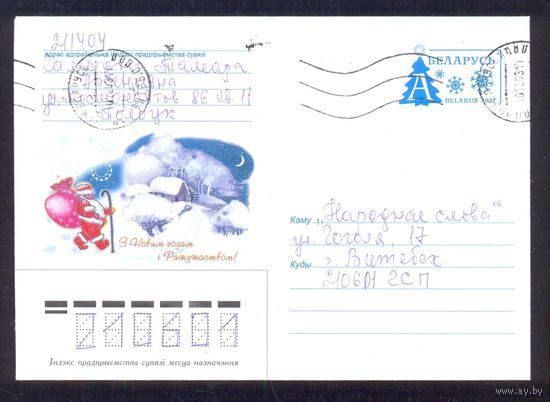 211404
адрас адпраўшчыка індэкс прадпрыемства сувязі
Тамара
ул. 86 кв. 11
г. Полоцк
БЕЛАРУСЬ
A
BELARUS 2002
З Новым годам
і Раджаством!
Каму „Народнае слова"
ул. Гоголя, 17
Куды г. Витебск
210601 ГСП
210601
Індэкс прадпрыемства сувязі месца назначэння
www.ay.by